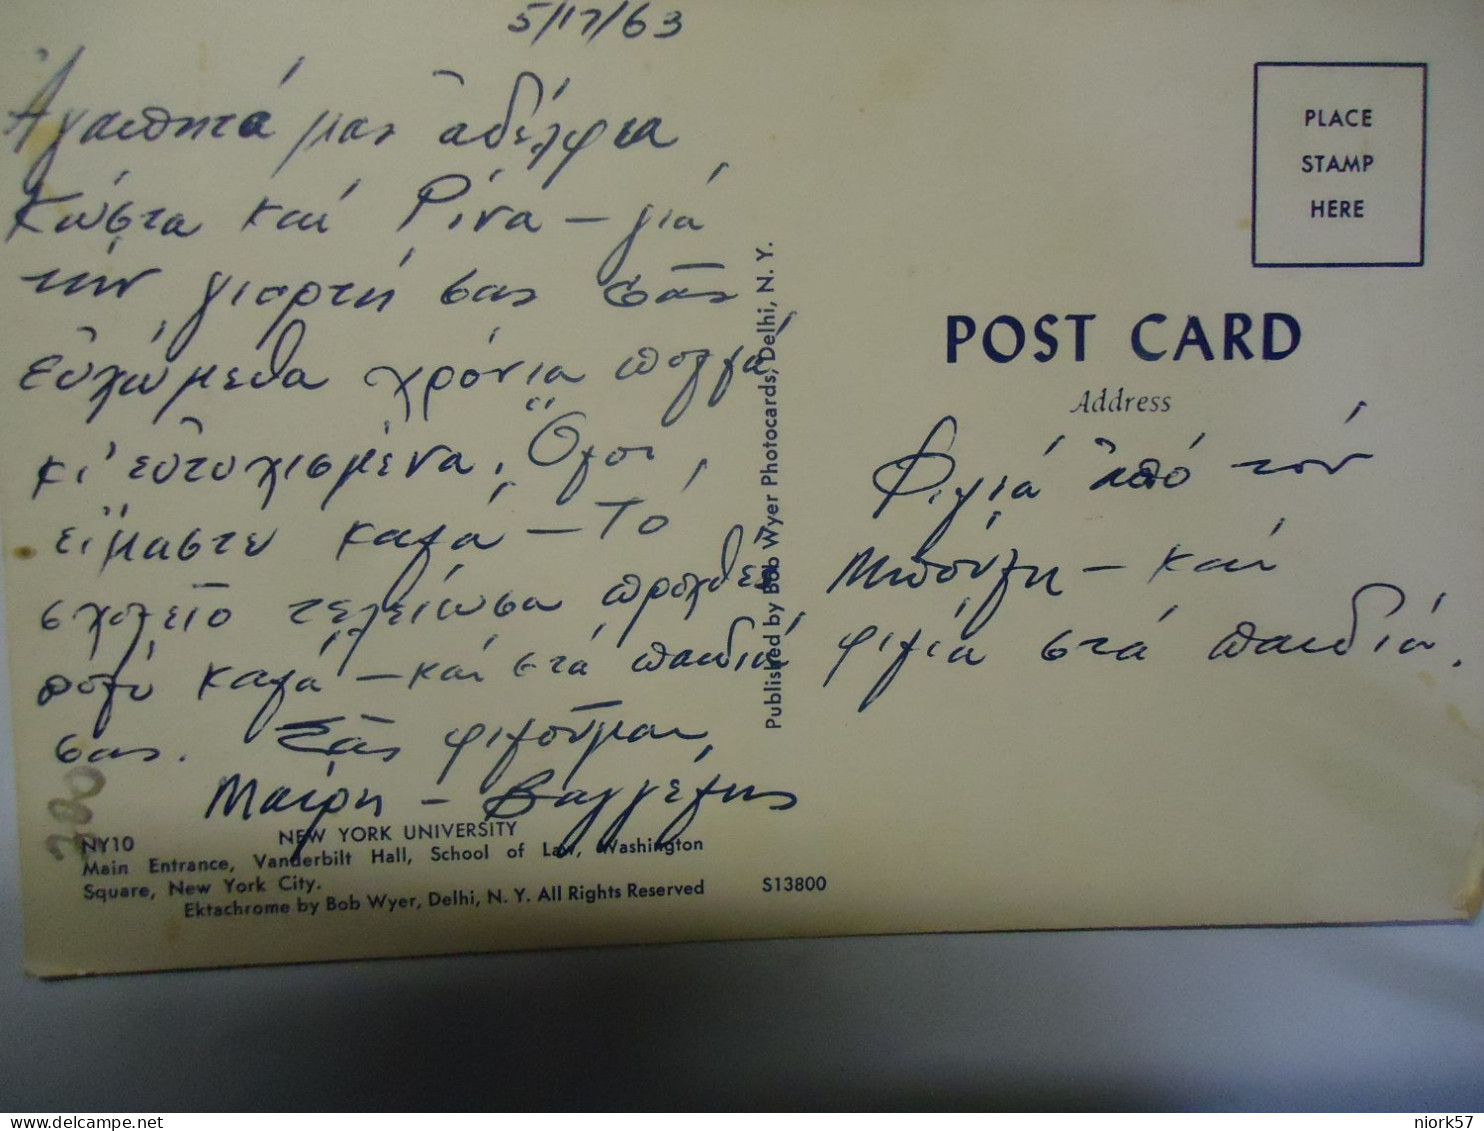 5/17/63
Ἀγαπητά μας ἀδέλφια
Κώστα καί Ρίνα – γιά
τήν γιορτή σας σᾶς
εὐχώμεθα χρόνια πολλά
κι' εὐτυχισμένα. Ὅλοι
εἴμαστε καλά – Τό
σχολεῖο τελείωσα
πολύ καλά – καί στά παιδιά
σας. Σᾶς φιλοῦμαι,
Μαίρη – Βαγγέλης
NY10
NEW YORK UNIVERSITY
Main Entrance, Vanderbilt Hall, School of Law, Washington
Square, New York City.
Ektachrome by Bob Wyer, Delhi, N. Y. All Rights Reserved
S13800
300
Published by Bob Wyer Photocards, Delhi, N. Y.
PLACE
STAMP
HERE
POST CARD
Address
Φιλιά ἀπό τόν
Μπούλη – καί
φιλιά στά παιδιά.
niork57